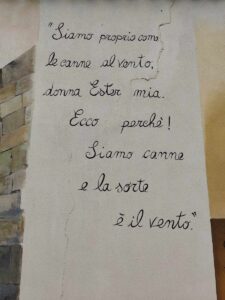 "Siamo proprio come
le canne al vento,
donna Ester mia.
Ecco perchè!
Siamo canne
e la sorte
è il vento."